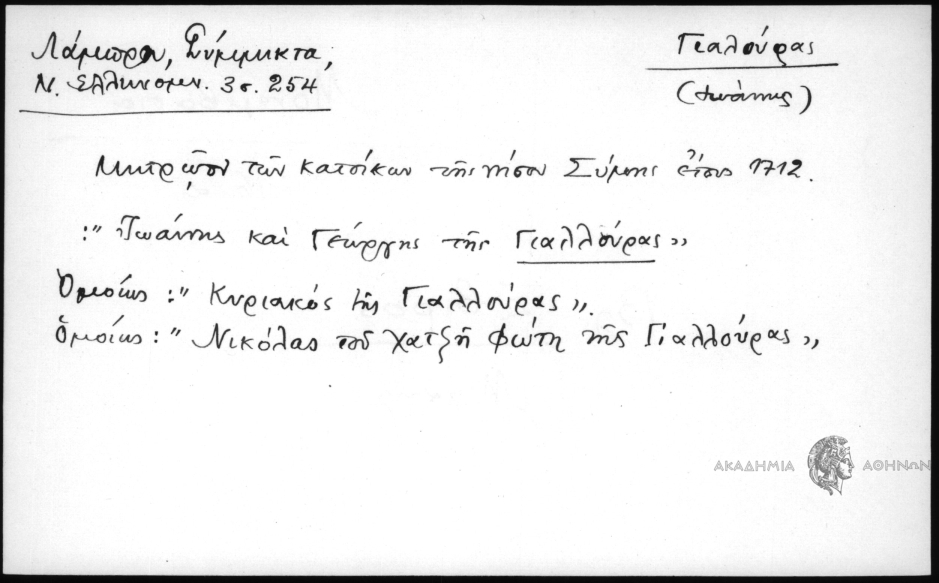 Λάμπρου, Σύμμικτα,
Ν. Ἑλληνομν. 3 σ. 254
Γιαλούρας
(Ἰωάννης)
Μητρῷον τῶν κατοίκων τῆς νήσου Σύμης ἔτους 1712.
:" Ἰωάννης καὶ Γεώργης τῆς Γιαλλούρας »
Ὁμοίως :" Κυριακός τῆς Γιαλλούρας ».
ὁμοίως :" Νικόλας τοῦ χατζῆ Φώτη τῆς Γιαλλούρας »
ΑΚΑΔΗΜΙΑ ΑΘΗΝΩΝ